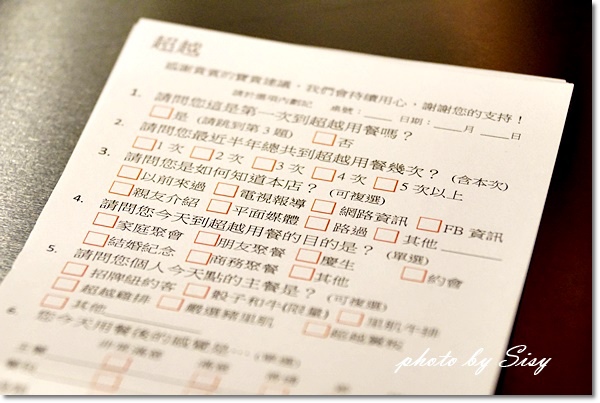 超越
感謝貴賓的寶貴建議,我們會持續用心,謝謝您的支持!
請於選項內劃記 桌號:___ 日期:___月___日
1. 請問您這是第一次到超越用餐嗎?
□是 (請跳到第3題) □否
2. 請問您最近半年總共到超越用餐幾次? (含本次)
□1次 □2次 □3次 □4次 □5次以上
3. 請問您是如何知道本店? (可複選)
□以前來過 □電視報導 □網路資訊 □FB 資訊
□親友介紹 □平面媒體 □路過 □其他______
4. 請問您今天到超越用餐的目的是? (單選)
□家庭聚會 □朋友聚餐 □慶生 □約會
□結婚紀念 □商務聚餐 □其他
5. 請問您個人今天點的主餐是? (可複選)
□招牌紐約客 □骰子和牛(限量) □里肌牛排
□超越雞排 □嚴選豬里肌
□其他______
6. 您今天用餐後的感覺是…
photo by Sisy